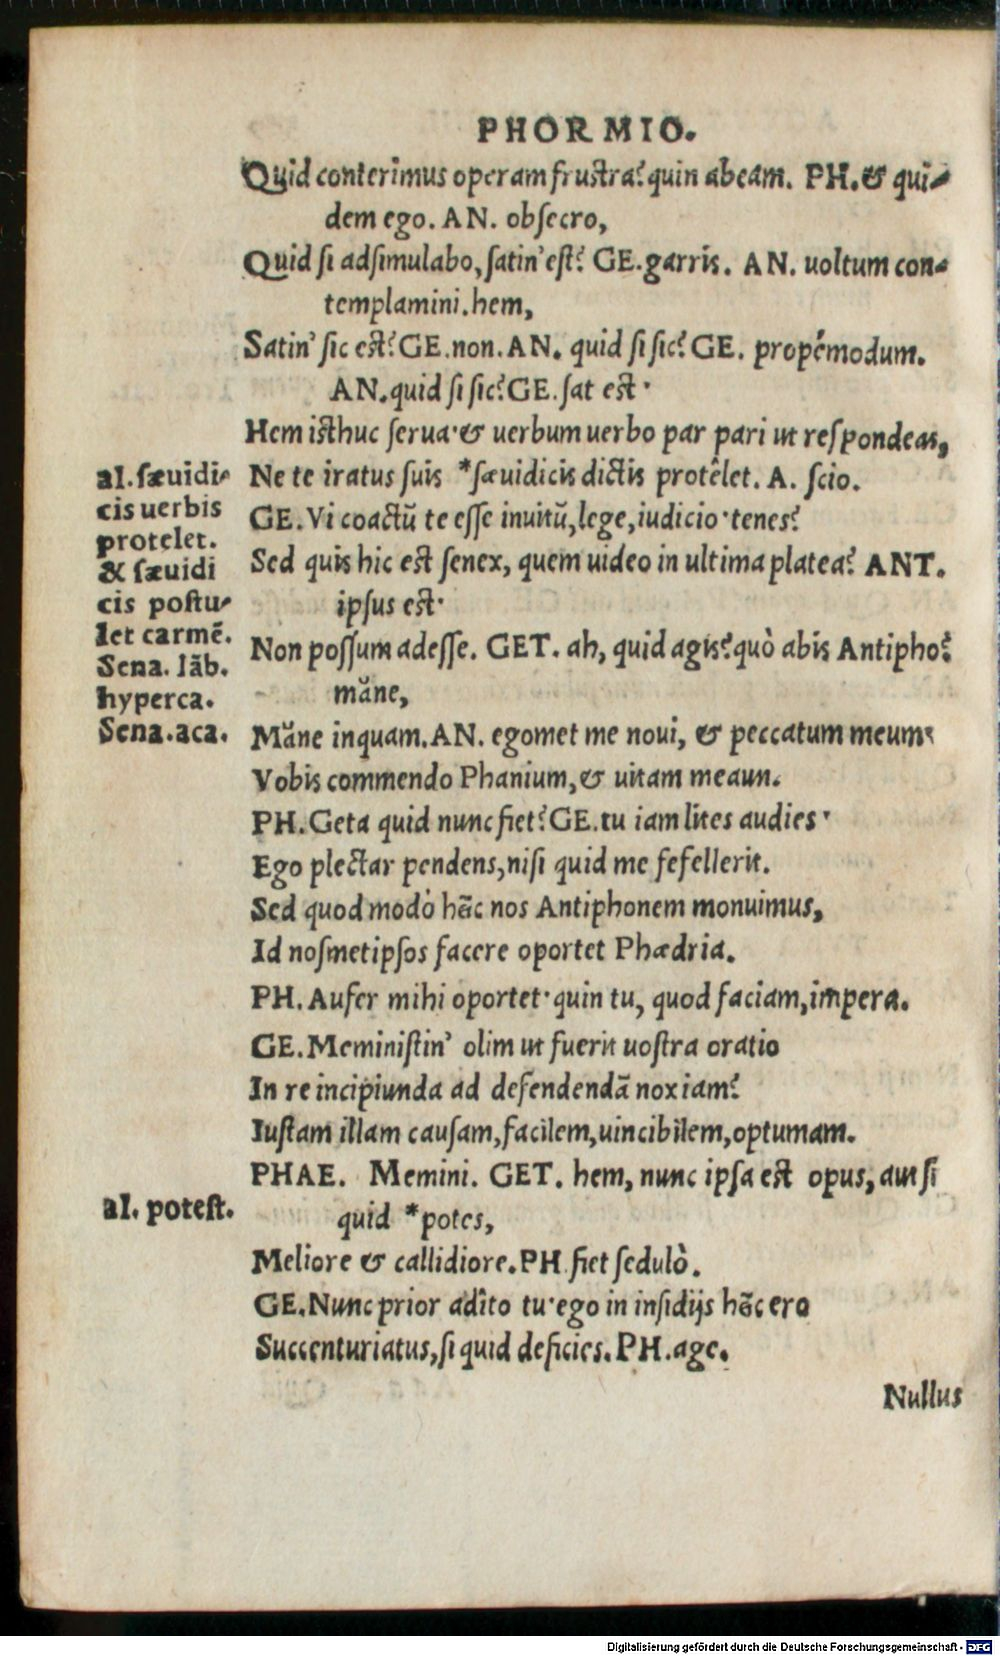 PHORMIO.
Quid conterimus operam frustra? quin abeam. PH. & qui-
dem ego. AN. obſecro,
Quid ſi adſimulabo, ſatin' eſt? GE. garris. AN. uoltum con-
templamini. hem,
Satin' ſic eſt? GE. non. AN. quid ſi ſic? GE. propémodum.
AN. quid ſi ſic? GE. ſat eſt·
Hem iſthuc ſerua· & uerbum uerbo par pari ut reſpondeas,
al. ſæuidi-
cis uerbis
protelet.
& ſæuidi
cis poſtu-
let carmē.
Sena. Iāb.
hyperca.
Sena. aca.
Ne te iratus ſuis *ſæuidicis dictis protêlet. A. ſcio.
GE. Vi coactū te eſſe inuitū, lege, iudicio· tenes?
Sed quis hic eſt ſenex, quem uideo in ultima platea? ANT.
ipſus eſt·
Non poſſum adeſſe. GET. ah, quid agis? quò abis Antipho?
măne,
Măne inquam. AN. egomet me noui, & peccatum meum:
Vobis commendo Phanium, & uitam meaun.
PH. Geta quid nunc fiet? GE. tu iam lites audies·
Ego plectar pendens, niſi quid me fefellerit.
Sed quod modò hāc nos Antiphonem monuimus,
Id noſmetipſos facere oportet Phædria.
PH. Aufer mihi oportet· quin tu, quod faciam, impera.
GE. Meminiſtin' olim ut fuerit uoſtra oratio
In re incipiunda ad defendendā noxiam?
Iuſtam illam cauſam, facilem, uincibilem, optumam.
PHAE. Memini. GET. hem, nunc ipſa eſt opus, aut ſi
al. poteſt.
quid *potes,
Meliore & callidiore. PH fiet ſedulò.
GE. Nunc prior adîto tu· ego in inſidijs hāc ero
Succenturiatus, ſi quid deficies. PH. age.
Nullus
Digitalisierung gefördert durch die Deutsche Forschungsgemeinschaft - DFG